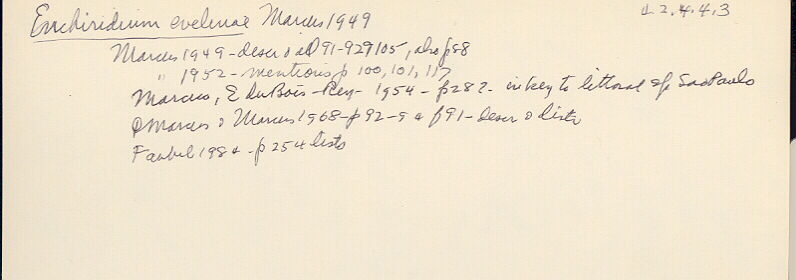 Enchiridium evelinae Marcus 1949
L 2.4.4.3
Marcus 1949 - descr & ill 91-92 105, also p 88
" 1952 - mentions p 100, 101, 117
Marcus, E DuBois-Rey - 1954 - p 282 - in key to littoral sp Sao Paulo
Marcus & Marcus 1968 - p 92-94 f 91 - descr & distr
Faubel 1984 - p 254 lists